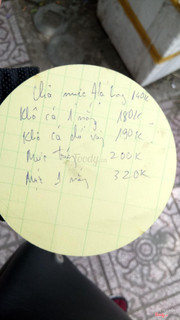 Chả mực Hạ Long 140K
Khô cá 1 nắng 180K
Khô cá chỉ vàng 190K
Mực trứng 200K
Mực 1 nắng 320K